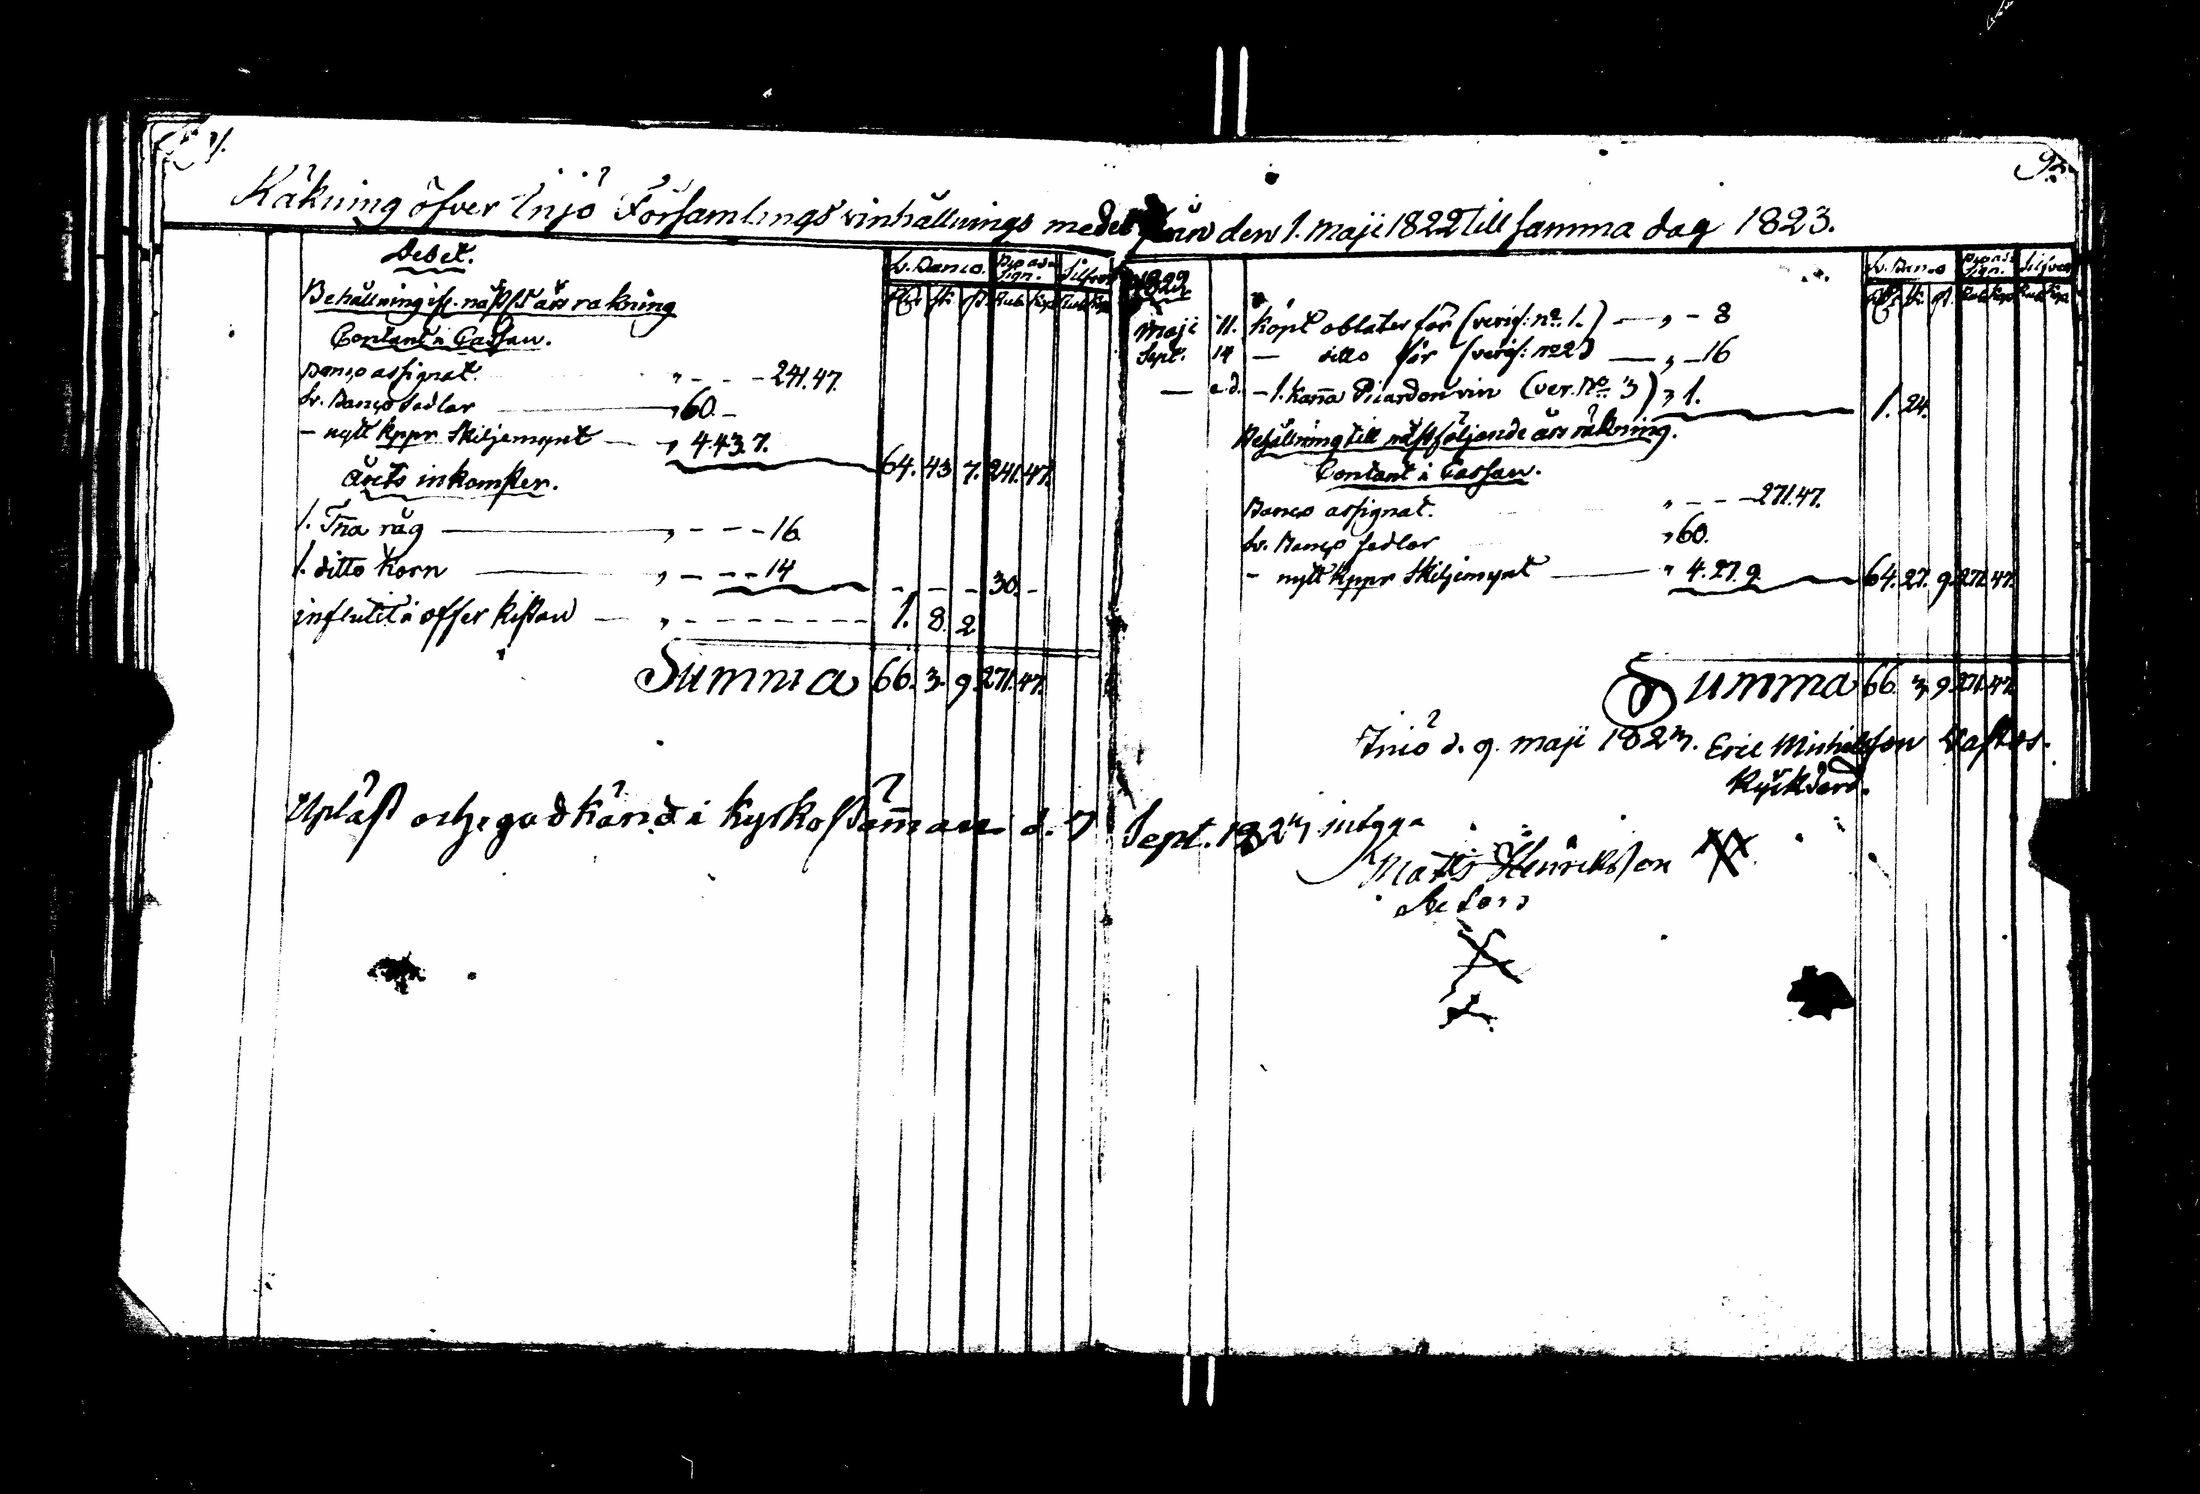 Räkning öfver Iniö Församlings vinhållnings medel från den 1. maji 1822 till samma dag 1823.
Debet.
Sv. Banco. Bco assign. Silfver
Behållning ifr. näst f. års räkning
Contant i Cassan.
Banco assignat. " - - - 241.47.
Sv. Banco sedlar " 60. -
- nytt kppr skiljemynt " 4.43.7. 64. 43 7. 241. 47.
årets inkomster.
1. Tna råg " - - - 16.
1. ditto korn " - - - 14 - - - 30. -
influtit i offer kistan " - - - 1. 8. 2
Summa 66. 3. 9. 271. 47.
Upläst och godkänd i kyrkostämman d. 7 Sept. 1823 intyga
92.
Sv. Banco Bco assign. Silfver
1822
Maji 11. köpt oblater för (verif: no. 1.) — " - 8
Sept. 14 — ditto för (verif: no 2) — " - 16
— e.d. - 1. kanna Picardon vin (ver. No. 3) " 1. 1. 24.
Behållning till nästföljande års räkning.
Contant i Cassan.
Banco assignat. " - - - 271.47.
Sv. Banco sedlar " 60.
- nytt kppr skiljemynt " 4.27.9 64. 27. 9. 271. 47.
Summa 66 3. 9. 271. 47.
Iniö d. 9. maji 1823. Eric Michelsson
Kyrkvärd.
Matts Henriksson